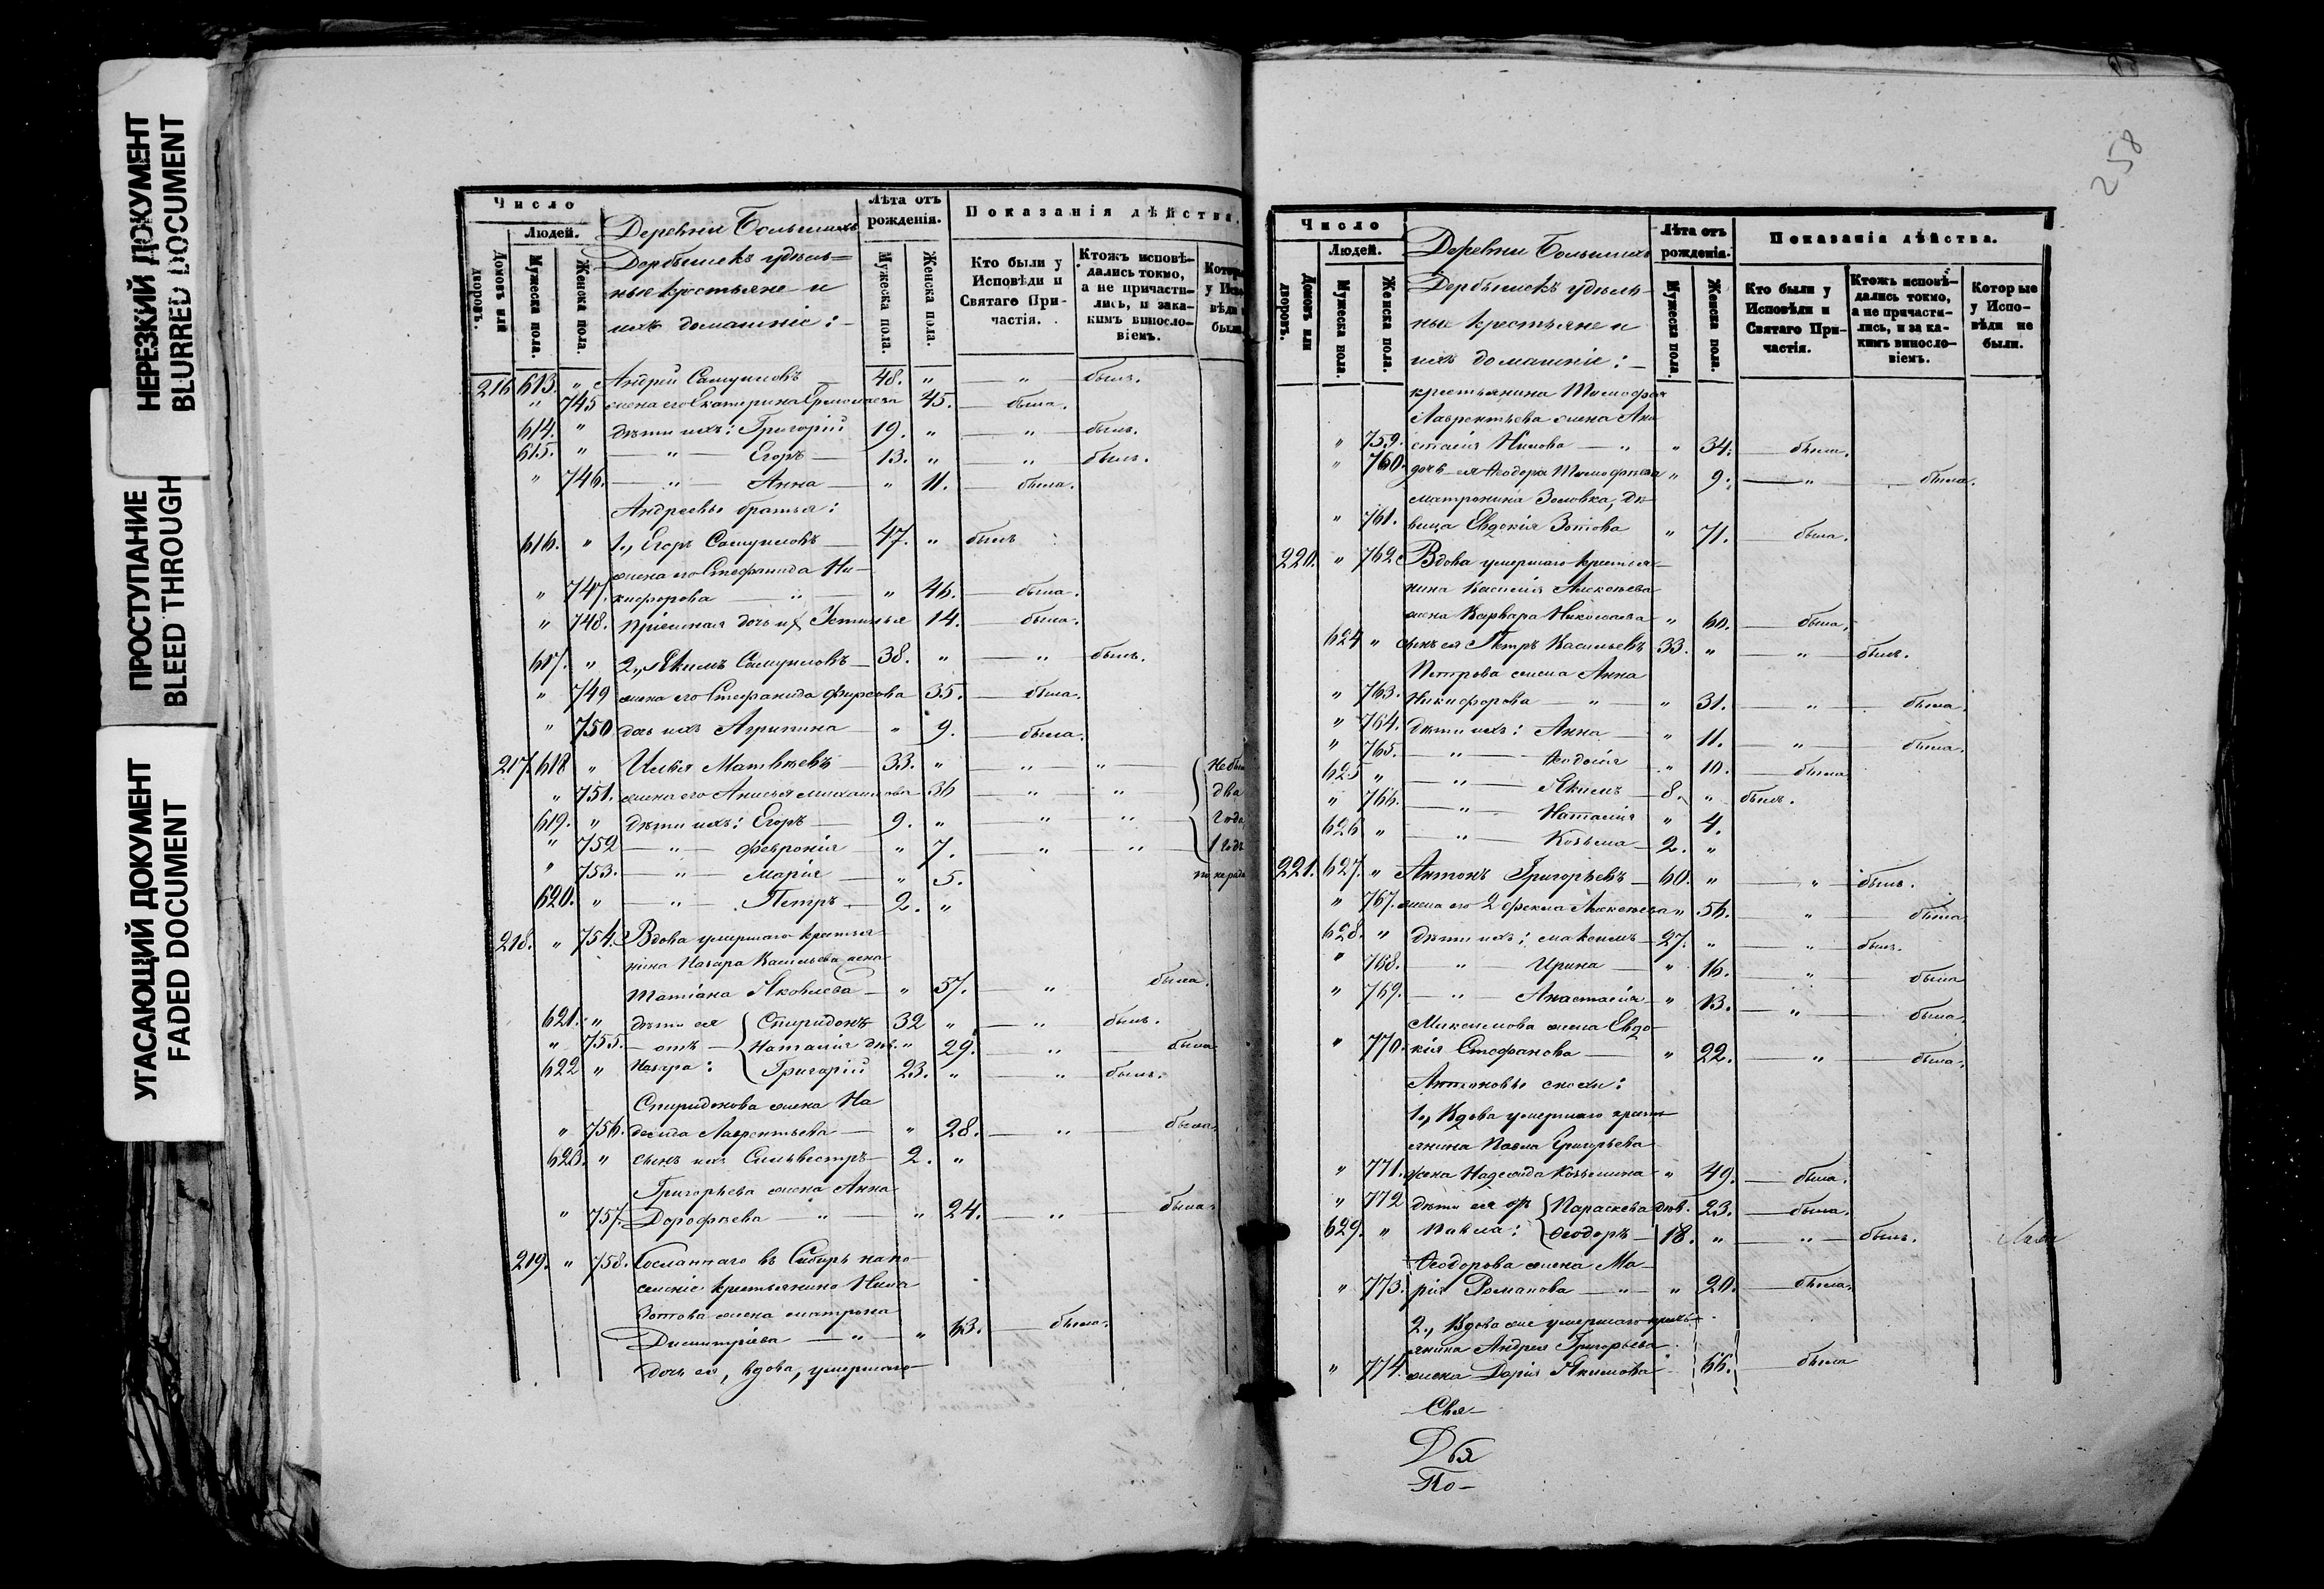 НЕРЕЗКИЙ ДОКУМЕНТ
BLURRED DOCUMENT
ПРОСТУПАНИЕ
BLEED THROUGH
УГАСАЮЩИЙ ДОКУМЕНТ
FADED DOCUMENT
Число
Людей.
Домовъ или дворовъ.
Мужеска пола.
Женска пола.
Деревни Большихъ
Дербышекъ удѣль=
ные крестьяне и
ихъ домашніе:
Лѣта отъ рожденія.
Мужеска пола.
Женска пола.
Показанія дѣйства.
Кто были у Исповѣди и Святаго Причастія.
Ктожъ исповѣдались токмо, а не причастились, и за какимъ винословіемъ.
216 613. " Андрей Самуиловъ 48. " — " — былъ.
" 745 жена его Екатерина Ермолаева 45. — была.
614. " дѣти ихъ: Григорій 19. " — " — былъ.
615. " — " — Егоръ 13. " " былъ.
" 746. — " — Анна " 11. — была.
Андреевы братья:
616. " 1., Егоръ Самуиловъ 47. " былъ
жена его Стефанида Ни-
" 747. кифорова — " — " 46. — была.
" 748. пріемная дочь их Устинья 14. — была.
617. " 2., Якимъ Самуиловъ 38. " — " — былъ.
" 749 жена его Стефанида Фирсова 35. — была.
" 750 дочь ихъ Агрипина " 9. — была.
217. 618 " Илья Матвѣевъ 33. " — " — " — не бы
" 751. жена его Анисья Михаилова 36 — " — " два
619. " дѣти ихъ: Егоръ 9. " — " — " года
" 752 — " — Февронія " 7. — " — " 1 годъ
" 753. — " — Марія " 5.
620. " — " — Петръ 2. "
218. " 754. Вдова умершаго крестья
нина Назара Васильева жена
Татіана Яковлева — " 57. — " — была.
621. " дѣти ея Спиридонъ 32 " — " — былъ.
" 755. — отъ — Наталія дѣв. " 29. — " — была
622 " Назара: Григорій 23. " — " — былъ.
Спиридонова жена На
" 756. дежда Лаврентьева — " 28. — " — была.
623. " сынъ ихъ Сильвестръ 2. "
Григорьева жена Анна
" 757. Дорофѣева — " — " 24. — " — была.
219. " 758. Сосланнаго въ Сибирь на по
селеніе крестьянина Нила
Зотова жена Матрона
Димитріева — " — " 63. — была.
дочь ея, вдова, умершаго
258
Число
Людей.
Домовъ или дворовъ.
Мужеска пола.
Женска пола.
Деревни Большихъ
Дербышекъ удѣль-
ные крестьяне и
ихъ домашніе:
Лѣта отъ рожденія.
Мужеска пола.
Женска пола.
Показанія дѣйства.
Кто были у Исповѣди и Святаго Причастія.
Ктожъ исповѣдались токмо, а не причастились, и за какимъ винословіемъ.
Которые у Исповѣди не были.
крестьянина Тимофея
Лаврентьева жена Ана
" 759. стасія Нилова — " " 34. — была.
" 760. дочь ея Ѳеодора Тимофѣева " 9. — " — была.
Матронина Золовка, дѣ
" 761. вица Евдокія Зотова " 71. — была.
220. " 762. Вдова умершаго крестья-
нина Василія Алексѣева
жена Варвара Николаева " 60. — была.
624 " сынъ ея Петръ Васильевъ 33. " — " — былъ.
Петрова жена Анна
" 763. Никифорова — " — " 31. — " — была.
" 764. дѣти ихъ: Анна " 11. — " — была.
" 765. — " — Ѳеодосія " 10. — была
625 " — " — Якимъ 8. " былъ.
" 766. — " — Наталія " 4.
626 " — " — Козьма 2. "
221. 627. " Антонъ Григорьевъ 60. " — " — былъ.
" 767. жена его 2 Фекла Алексѣева " 56. — " — была
628. " дѣти ихъ: Максимъ 27. " — " — былъ.
" 768. — " — Ирина " 16. — " — была
" 769. — " — Анастасія " 13. — " — была.
Максимова жена Евдо-
" 770. кія Стефанова — " 22. — " — была.
Антоновы снохи:
1., Вдова умершаго крест
янина Павла Григорьева
" 771. жена Надежда Козьмина " 49. — была.
" 772 дѣти ея от Параскева дѣв. 23. — была.
629. " Павла: Ѳеодоръ 18. " — " — былъ.
Ѳеодорова жена Ма-
" 773. рія Романова — " — " 20. — была.
2., Вдова же умершаго крест
янина Андрея Григорьева
" 774. жена Дарія Якимова 66. — была
Свя-
По-